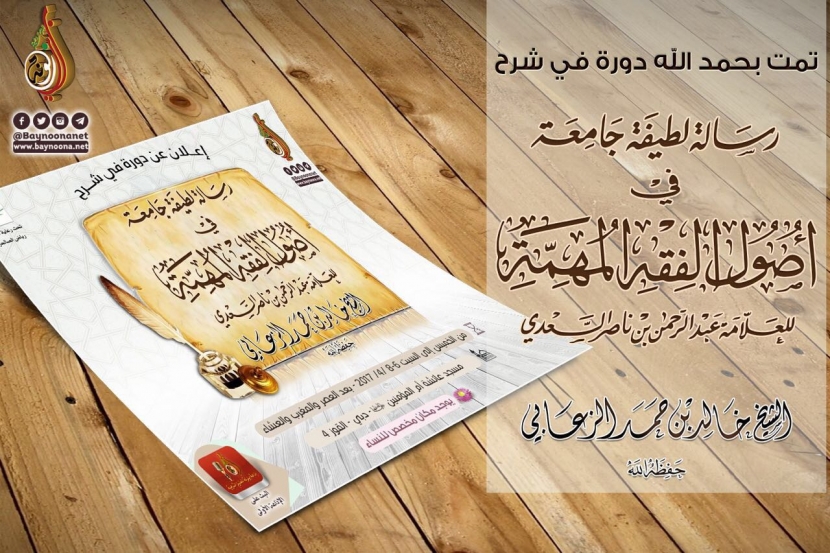 تمت بحمد الله دورة في شرح
رسالة لطيفة جامعة
في
أصول الفقه المهمة
للعلامة عبدالرحمن بن ناصر السعدي
الشيخ خالد بن حمد الزعابي
حفظه الله
@Baynoonanet
www.baynoona.net
إعلان عن دورة في شرح
رسالة لطيفة جامعة
في
أصول الفقه المهمة
للعلامة عبدالرحمن بن ناصر السعدي
الشيخ خالد بن حمد الزعابي
حفظه الله
من الخميس إلى السبت 6-8 /4/ 2017 - بعد العصر والمغرب والعشاء
مسجد عائشة أم المؤمنين - دبي - القوز 4
يوجد مكان مخصص للنساء
البث على